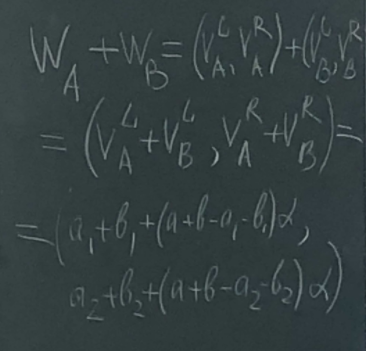 W_A + W_B = (V_A^L, V_A^R) + (V_B^L, V_B^R
= (V_A^L + V_B^L, V_A^R + V_B^R) =
= (a_1 + b_1 + (a + b - a_1 - b_1)α,
a_2 + b_2 + (a + b - a_2 - b_2)α)